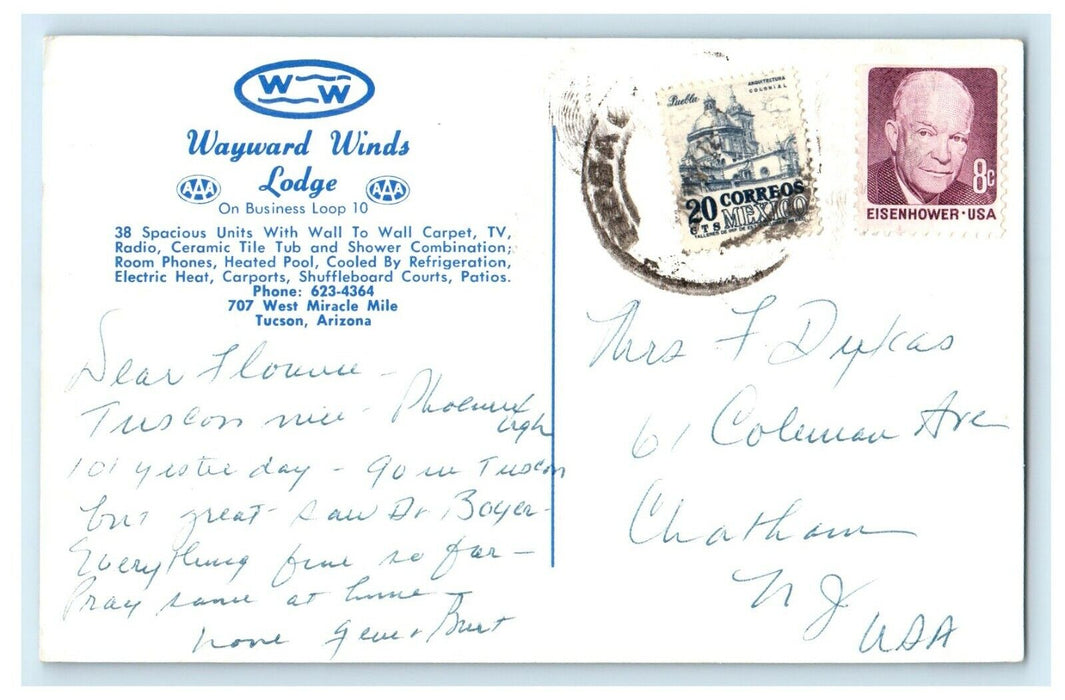 WW
Wayward Winds
Lodge
AAA AAA
On Business Loop 10
38 Spacious Units With Wall To Wall Carpet, TV,
Radio, Ceramic Tile Tub and Shower Combination;
Room Phones, Heated Pool, Cooled By Refrigeration,
Electric Heat, Carports, Shuffleboard Courts, Patios.
Phone: 623-4364
707 West Miracle Mile
Tucson, Arizona
Dear
Tuscon nice - Phoenix
ugh
101 yesterday - 90 in Tuscon
but great - saw Dr Boyer -
Everything fine so far -
Pray same at home
Love Gene + Burt
Puebla
ARQUITECTURA
COLONIAL
20 CORREOS
CTS MEXICO
8c
EISENHOWER·USA
Mrs F Dykas
61 Coleman Ave
Chatham
NJ
USA